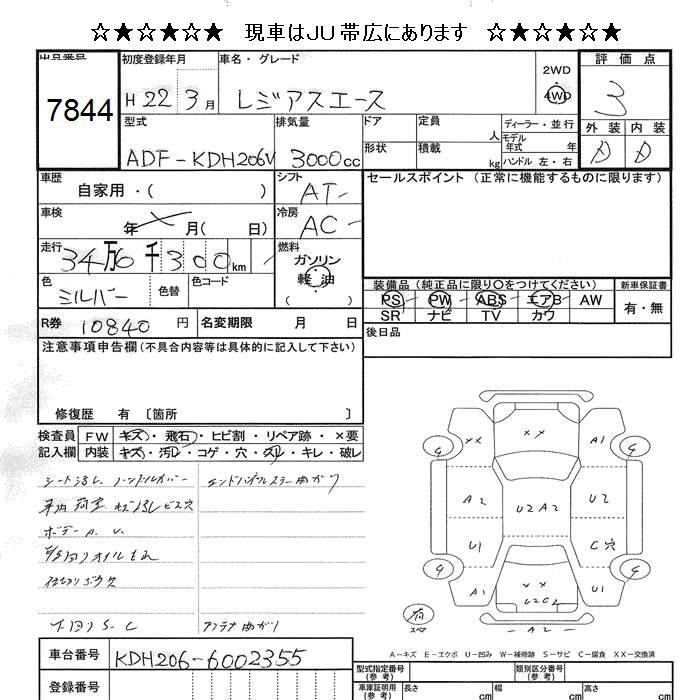 ☆★☆★☆★ 現車はJU帯広にあります ☆★☆★☆★
出品番号 初度登録年月 車名・グレード 2WD 4WD 評価点
7844 H22 3月 レジアスエース 3
型式 排気量 ドア 定員 人 ディーラー・並行 外装 内装
モデル年式 年
ADF-KDH206V 3000cc 形状 積載 kg ハンドル 左・右 D D
車歴 自家用・( ) シフト AT セールスポイント (正常に機能するものに限ります)
車検 年 月( 日) 冷房 AC
走行 34万6千300km 燃料 ガソリン 軽油 ( )
色 シルバー 色替 色コード
装備品 (純正品に限り○をつけてください) 新車保証書
PS PW ABS エアB AW 有・無
SR ナビ TV カワ
R券 10840円 名変期限 月 日 後日品
注意事項申告欄(不具合内容等は具体的に記入して下さい)
修復歴 有 〔箇所 〕
検査員 FW キズ・飛石・ヒビ割・リペア跡・×要
記入欄 内装 キズ・汚レ・コゲ・穴・スレ・キレ・破レ
ボデーA.U.
下回りS-C
アンテナ曲がり
XX XX A1
G G
A2 U2A2 U2
U1 C穴
G G
A1 XX U1
U2C2
有
A2
A-キズ E-エクボ U-凹み W-補修跡 S-サビ C-腐食 XX-交換済
車台番号 KDH206-6002355
型式指定番号(参考) 類別区分番号(参考)
登録番号 車庫証明用(参考) 長さ cm 幅 cm 高さ cm